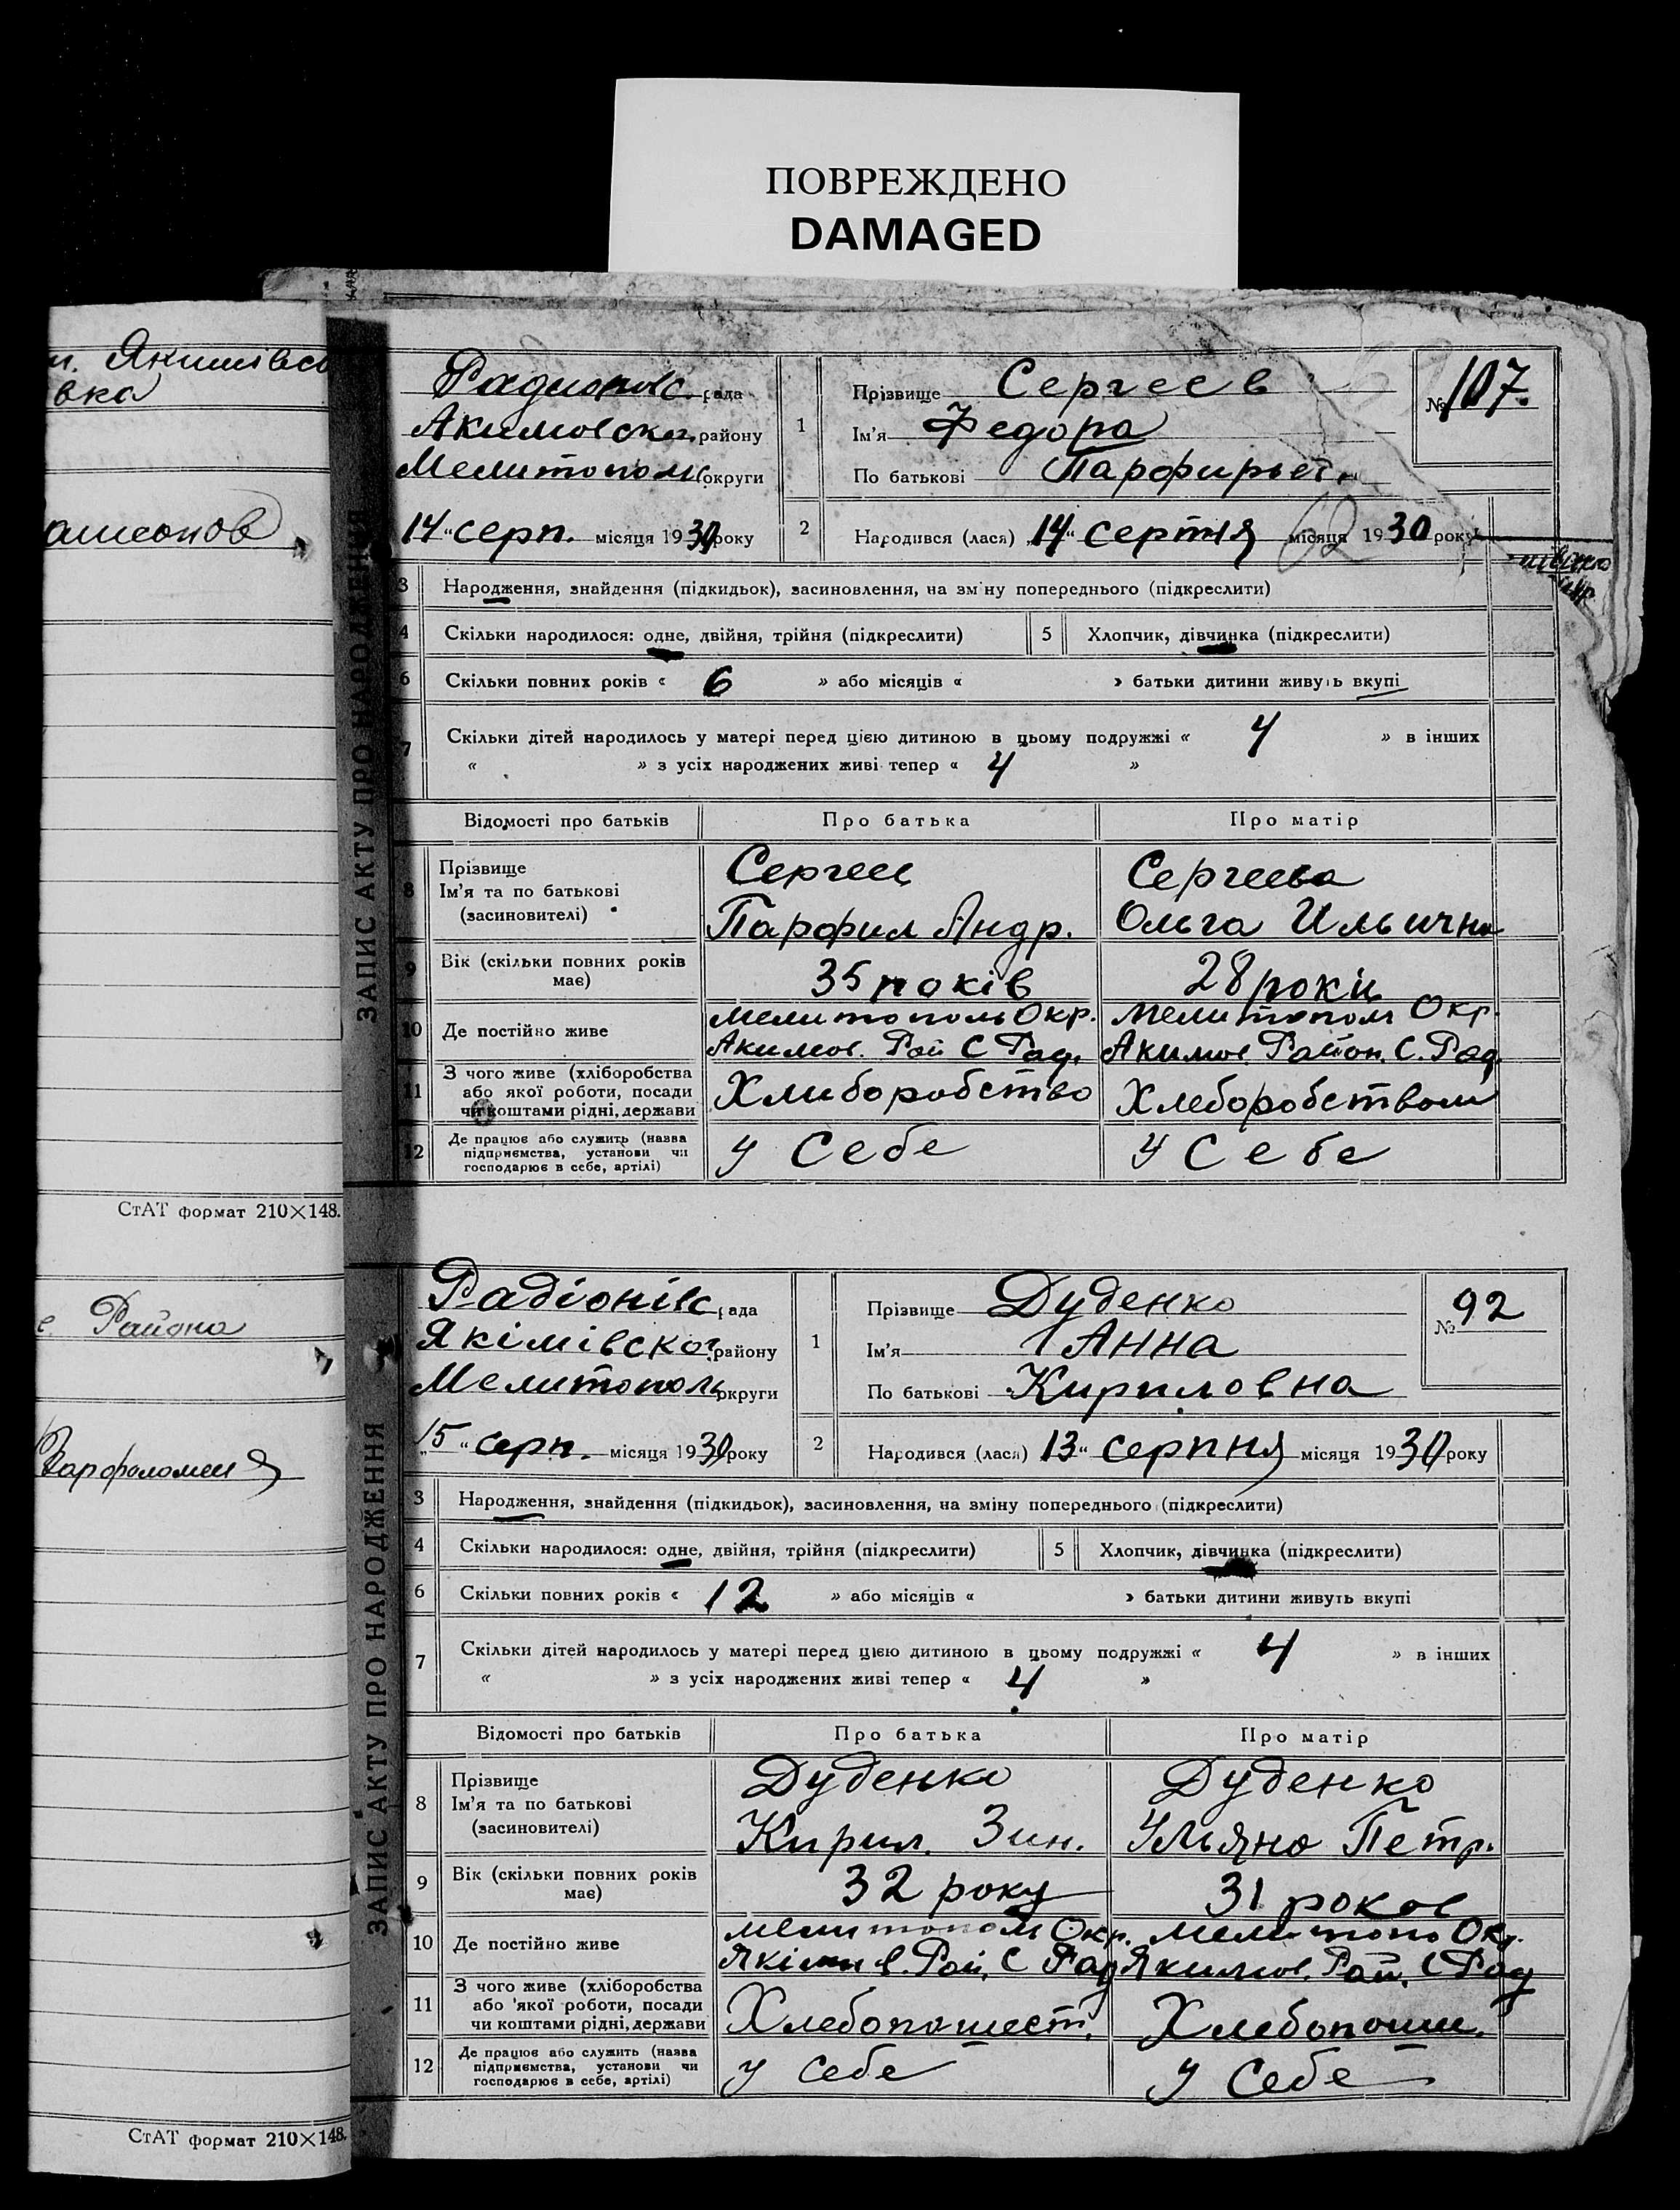 ПОВРЕЖДЕНО
DAMAGED
Якимівсь
вка
СтАТ формат 210×148.
Района
Варфоломея
СтАТ формат 210×148.
ЗАПИС АКТУ ПРО НАРОДЖЕННЯ
Радионовс. рада
Акимовског. району
Мелитополь округи
14 “ серп. місяця 1930 року
1
Прізвище Сергеев
Ім'я Федора
По батькові Парфирьев.
№ 107.
2
Народився (лася) „14“ серпня місяця 1930 року
62
3 Народження, знайдення (підкидьок), засиновлення, на зміну попереднього (підкреслити)
4 Скільки народилося: одне, двійня, трійня (підкреслити) 5 Хлопчик, дівчинка (підкреслити)
6 Скільки повних років « 6 » або місяців « » батьки дитини живуть вкупі
7 Скільки дітей народилось у матері перед цією дитиною в цьому подружжі « 4 » в інших
« » з усіх народжених живі тепер « 4 »
Відомості про батьків Про батька Про матір
8 Прізвище
Ім'я та по батькові
(засиновителі)
Сергеев
Парфил Андр.
Сергеева
Ольга Ильична
9 Вік (скільки повних років має)
35 років
28 роки
10 Де постійно живе
Мелитополь Окр.
Акимов. Рай С Рад.
Мелитополь Окр.
Акимов Район. С. Рад.
11 З чого живе (хліборобства
або якої роботи, посади
чи коштами рідні, держави
Хлиборобство
Хлеборобством
12 Де працює або служить (назва
підприємства, установи чи
господарює в себе, артілі)
у Себе
у Себе
ЗАПИС АКТУ ПРО НАРОДЖЕННЯ
Радіонівс рада
Якімівског. району
Мелитополь округи
„15 “ серп. місяця 1930 року
1
Прізвище Дуденко
Ім'я Анна
По батькові Кириловна
№ 92
2
Народився (лася) 13“ серпня місяця 1930 року
3 Народження, знайдення (підкидьок), засиновлення, на зміну попереднього (підкреслити)
4 Скільки народилося: одне, двійня, трійня (підкреслити) 5 Хлопчик, дівчинка (підкреслити)
6 Скільки повних років « 12 » або місяців « » батьки дитини живуть вкупі
7 Скільки дітей народилось у матері перед цією дитиною в цьому подружжі « 4 » в інших
« » з усіх народжених живі тепер « 4 »
Відомості про батьків Про батька Про матір
8 Прізвище
Ім'я та по батькові
(засиновителі)
Дуденко
Кирил. Зин.
Дуденко
Ульяна Петр.
9 Вік (скільки повних років має)
32 року
31 роков
10 Де постійно живе
Мелитополь Окр.
Якімив. Рай. С Рад
Мелитопо Окр.
Якимов. Рай. С Рад
11 З чого живе (хліборобства
або якої роботи, посади
чи коштами рідні, держави
Хлебопашест.
Хлебопаш.
12 Де працює або служить (назва
підприємства, установи чи
господарює в себе, артілі)
у себе
у Себе